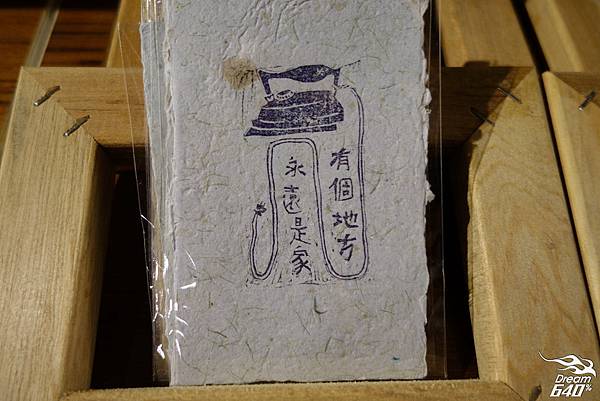 有個地方
永遠是家
Dream
640%